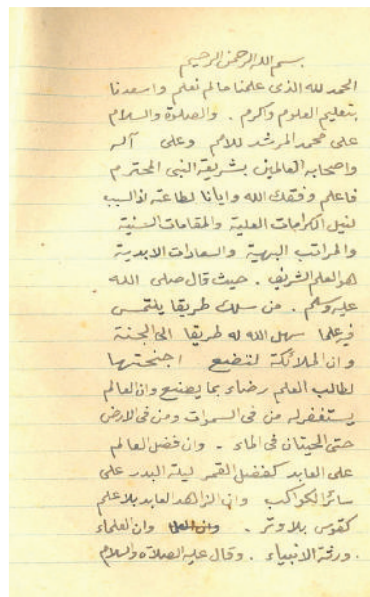 بسم الله الرحمن الرحيم
الحمد لله الذى علمنا مالم نعلم واسعدنا
بتعليم العلوم وكرم . والصلوة والسلام
على محمد المرشد للامم وعلى آله
واصحابه العالمين بشريعة النبى المحترم
فاعلم وفقك الله وايانا لطاعته ان السبب
لنيل الكرامات العلية والمقامات السنية
والمراتب البهية والسعادات الابدية
هو العلم الشريف . حيث قال صلى الله
عليه وسلم . من سلك طريقا يلتمس
فيه علما سهل الله له طريقا الى الجنة
وان الملائكة لتضع اجنحتها
لطالب العلم رضاء بما يصنع وان العالم
يستغفر له من فى السموات ومن فى الارض
حتى الحيتان فى الماء . وان فضل العالم
على العابد كفضل القمر ليلة البدر على
سائر الكواكب وان الزاهد العابد بلا علم
كقوس بلا وتر . وان العلماء
ورثة الانبياء . وقال عليه الصلاة والسلام